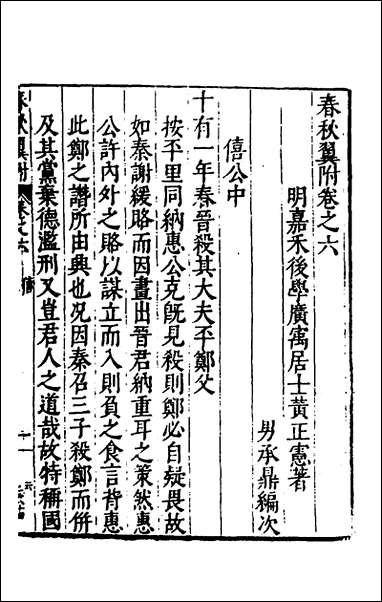 春秋翼附卷之六
明嘉禾後學廣寓居士黃正憲著
男承鼎編次
僖公中
十有一年春晉殺其大夫㔻鄭父
按㔻里同納惠公克既見殺則鄭必自疑畏故
如秦謝緩賂而因畫出晉君納重耳之策然惠
公許內外之賂以謀立而入則負之食言背惠
此鄭之譖所由興也况因秦召三子殺鄭而併
及其黨棄德濫刑又豈君人之道哉故特稱國
春秋翼附 卷之六 僖 一